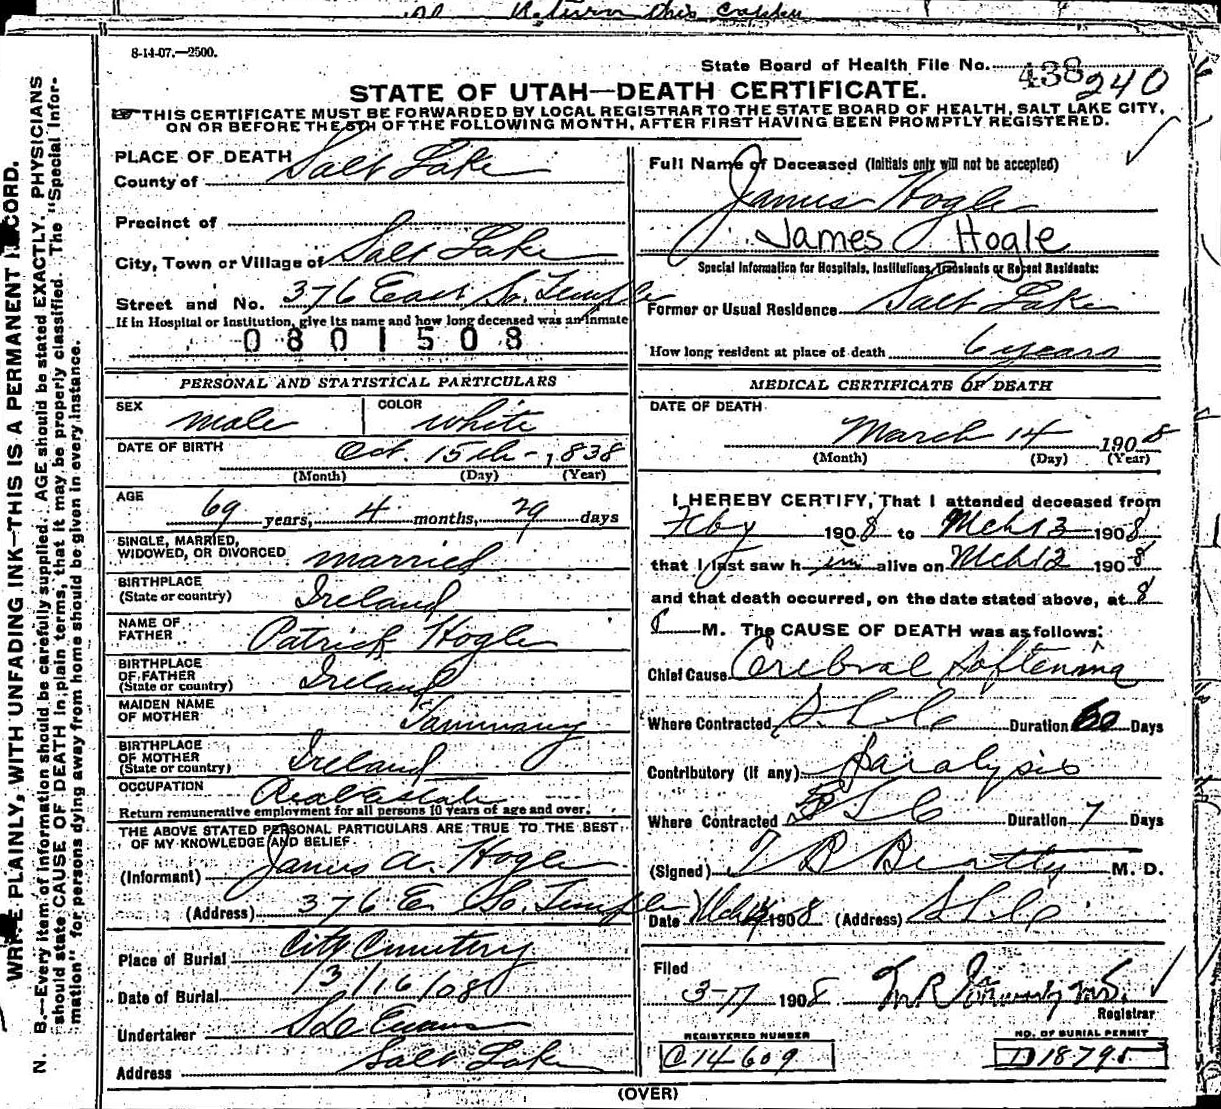 Return this
8-14-07.—2500.
State Board of Health File No. 438 240
STATE OF UTAH—DEATH CERTIFICATE.
THIS CERTIFICATE MUST BE FORWARDED BY LOCAL REGISTRAR TO THE STATE BOARD OF HEALTH, SALT LAKE CITY,
ON OR BEFORE THE 5TH OF THE FOLLOWING MONTH, AFTER FIRST HAVING BEEN PROMPTLY REGISTERED.
PLACE OF DEATH
County of Salt Lake
Precinct of
City, Town or Village of Salt Lake
Street and No. 376 East So. Temple
If in Hospital or Institution, give its name and how long deceased was an inmate
0801508
PERSONAL AND STATISTICAL PARTICULARS
SEX male COLOR white
DATE OF BIRTH Oct. 15th 1838
(Month) (Day) (Year)
AGE 69 years, 4 months, 29 days
SINGLE, MARRIED,
WIDOWED, OR DIVORCED married
BIRTHPLACE
(State or country) Ireland
NAME OF
FATHER Patrick Hogle
BIRTHPLACE
OF FATHER
(State or country) Ireland
MAIDEN NAME
OF MOTHER Tammany
BIRTHPLACE
OF MOTHER
(State or country) Ireland
OCCUPATION Real Estate
Return remunerative employment for all persons 10 years of age and over.
THE ABOVE STATED PERSONAL PARTICULARS ARE TRUE TO THE BEST
OF MY KNOWLEDGE AND BELIEF
(Informant) James A. Hogle
(Address) 376 E. So. Temple
Place of Burial City Cemetery
Date of Burial 3/16/08
Undertaker S D Evans
Address Salt Lake
Full Name of Deceased (Initials only will not be accepted)
James Hogle
James Hogle
Special Information for Hospitals, Institutions, Transients or Recent Residents:
Former or Usual Residence Salt Lake
How long resident at place of death 6 years
MEDICAL CERTIFICATE OF DEATH
DATE OF DEATH
March 14 1908
(Month) (Day) (Year)
I HEREBY CERTIFY, That I attended deceased from
Feby 1908 to Mch 13 1908
that I last saw him alive on Mch 12 1908
and that death occurred, on the date stated above, at 8
M. The CAUSE OF DEATH was as follows:
Chief Cause Cerebral Softening
Where Contracted S L C Duration 60 Days
Contributory (if any) Paralysis
Where Contracted S L C Duration 7 Days
(Signed) T B Beatty M. D.
Date Mch 1908 (Address) S L C
Filed
3-17 1908 M.D.
Registrar
REGISTERED NUMBER
C 14609
NO. OF BURIAL PERMIT
D 18795
(OVER)
WRITE PLAINLY, WITH UNFADING INK—THIS IS A PERMANENT RECORD.
N. B.—Every item of information should be carefully supplied. AGE should be stated EXACTLY. PHYSICIANS
should state CAUSE OF DEATH in plain terms, that it may be properly classified. The "Special Infor-
mation" for persons dying away from home should be given in every instance.